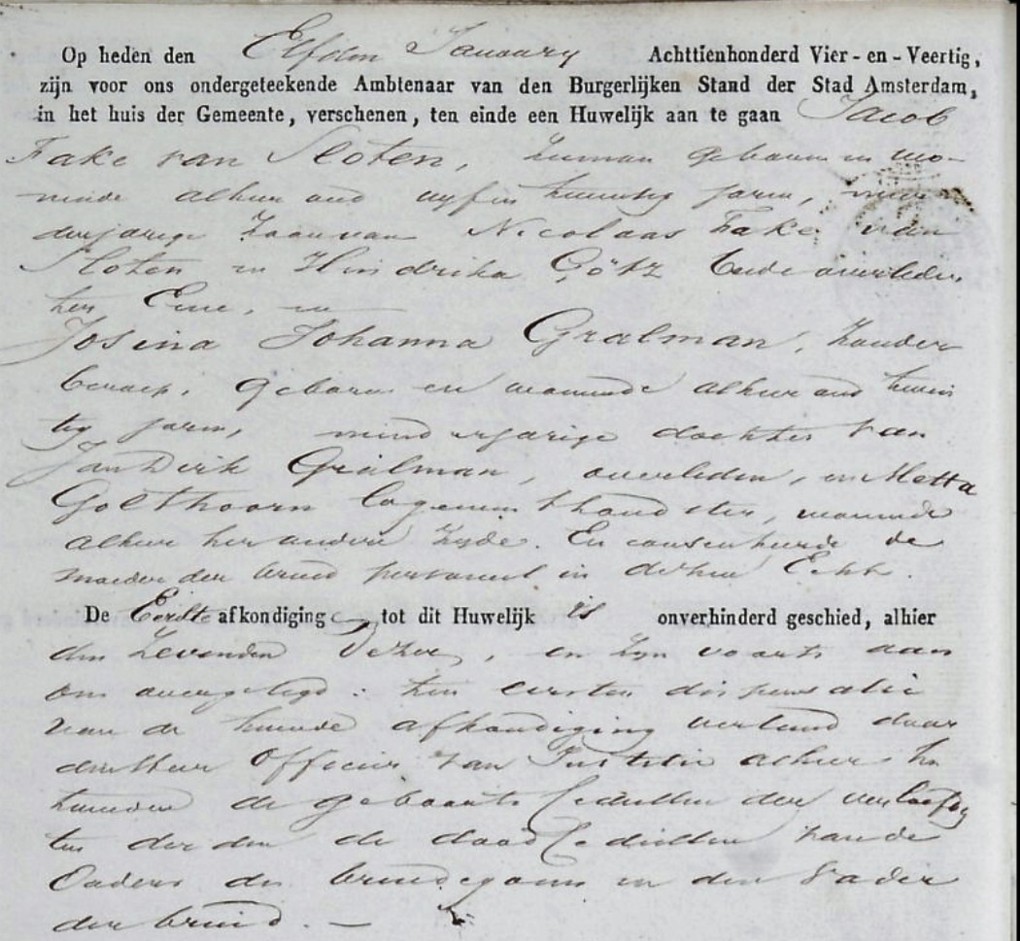 Op heden den Elfden January Achttienhonderd Vier-en-Veertig,
zijn voor ons ondergeteekende Ambtenaar van den Burgerlijken Stand der Stad Amsterdam,
in het huis der Gemeente, verschenen, ten einde een Huwelijk aan te gaan Jacob
Fake van Sloten, Zeeman geboren en wo-
nende alhier oud vyf en twintig jaren, meer
derjarige Zoon van Nicolaas Fake van
Sloten en Hindrika Götz beide overleden
ter Eene, en
Josina Johanna Gralman, zonder
beroep, geboren en wonende alhier oud twin
tig jaren, minderjarige dochter van
Jan Dirk Gralman, overleden, en Metta
Golthoorn logementhoudster, wonende
alhier ter andere zyde. En consenteerde de
moeder der bruid personeel in dezen Echt.
De Eerste afkondiging tot dit Huwelijk is onverhinderd geschied, alhier
den Zevenden dezer, en zyn voorts aan
ons overgelegd: ten eersten dispensatie
van de tweede afkondiging verleend door
den Heer Officier van Justitie alhier ten
tweeden de geboorte Cedullen der verloofden
ten derden de dood Cedullen van de
Ouders des bruidegoms en den Vader
der bruid. —